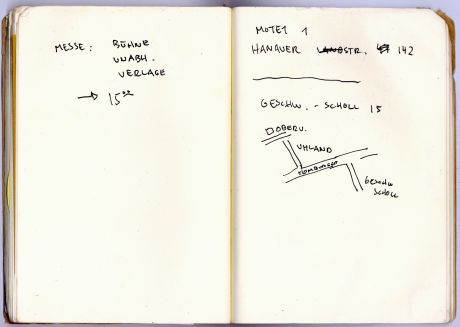 MESSE: BÜHNE
UNABH.
VERLAGE
→ 15⁰⁰
MOTEL 1
HANAUER LANDSTR. 142
GESCHW. - SCHOLL 15
DOBERV.
UHLAND
GESCHW
SCHOLL